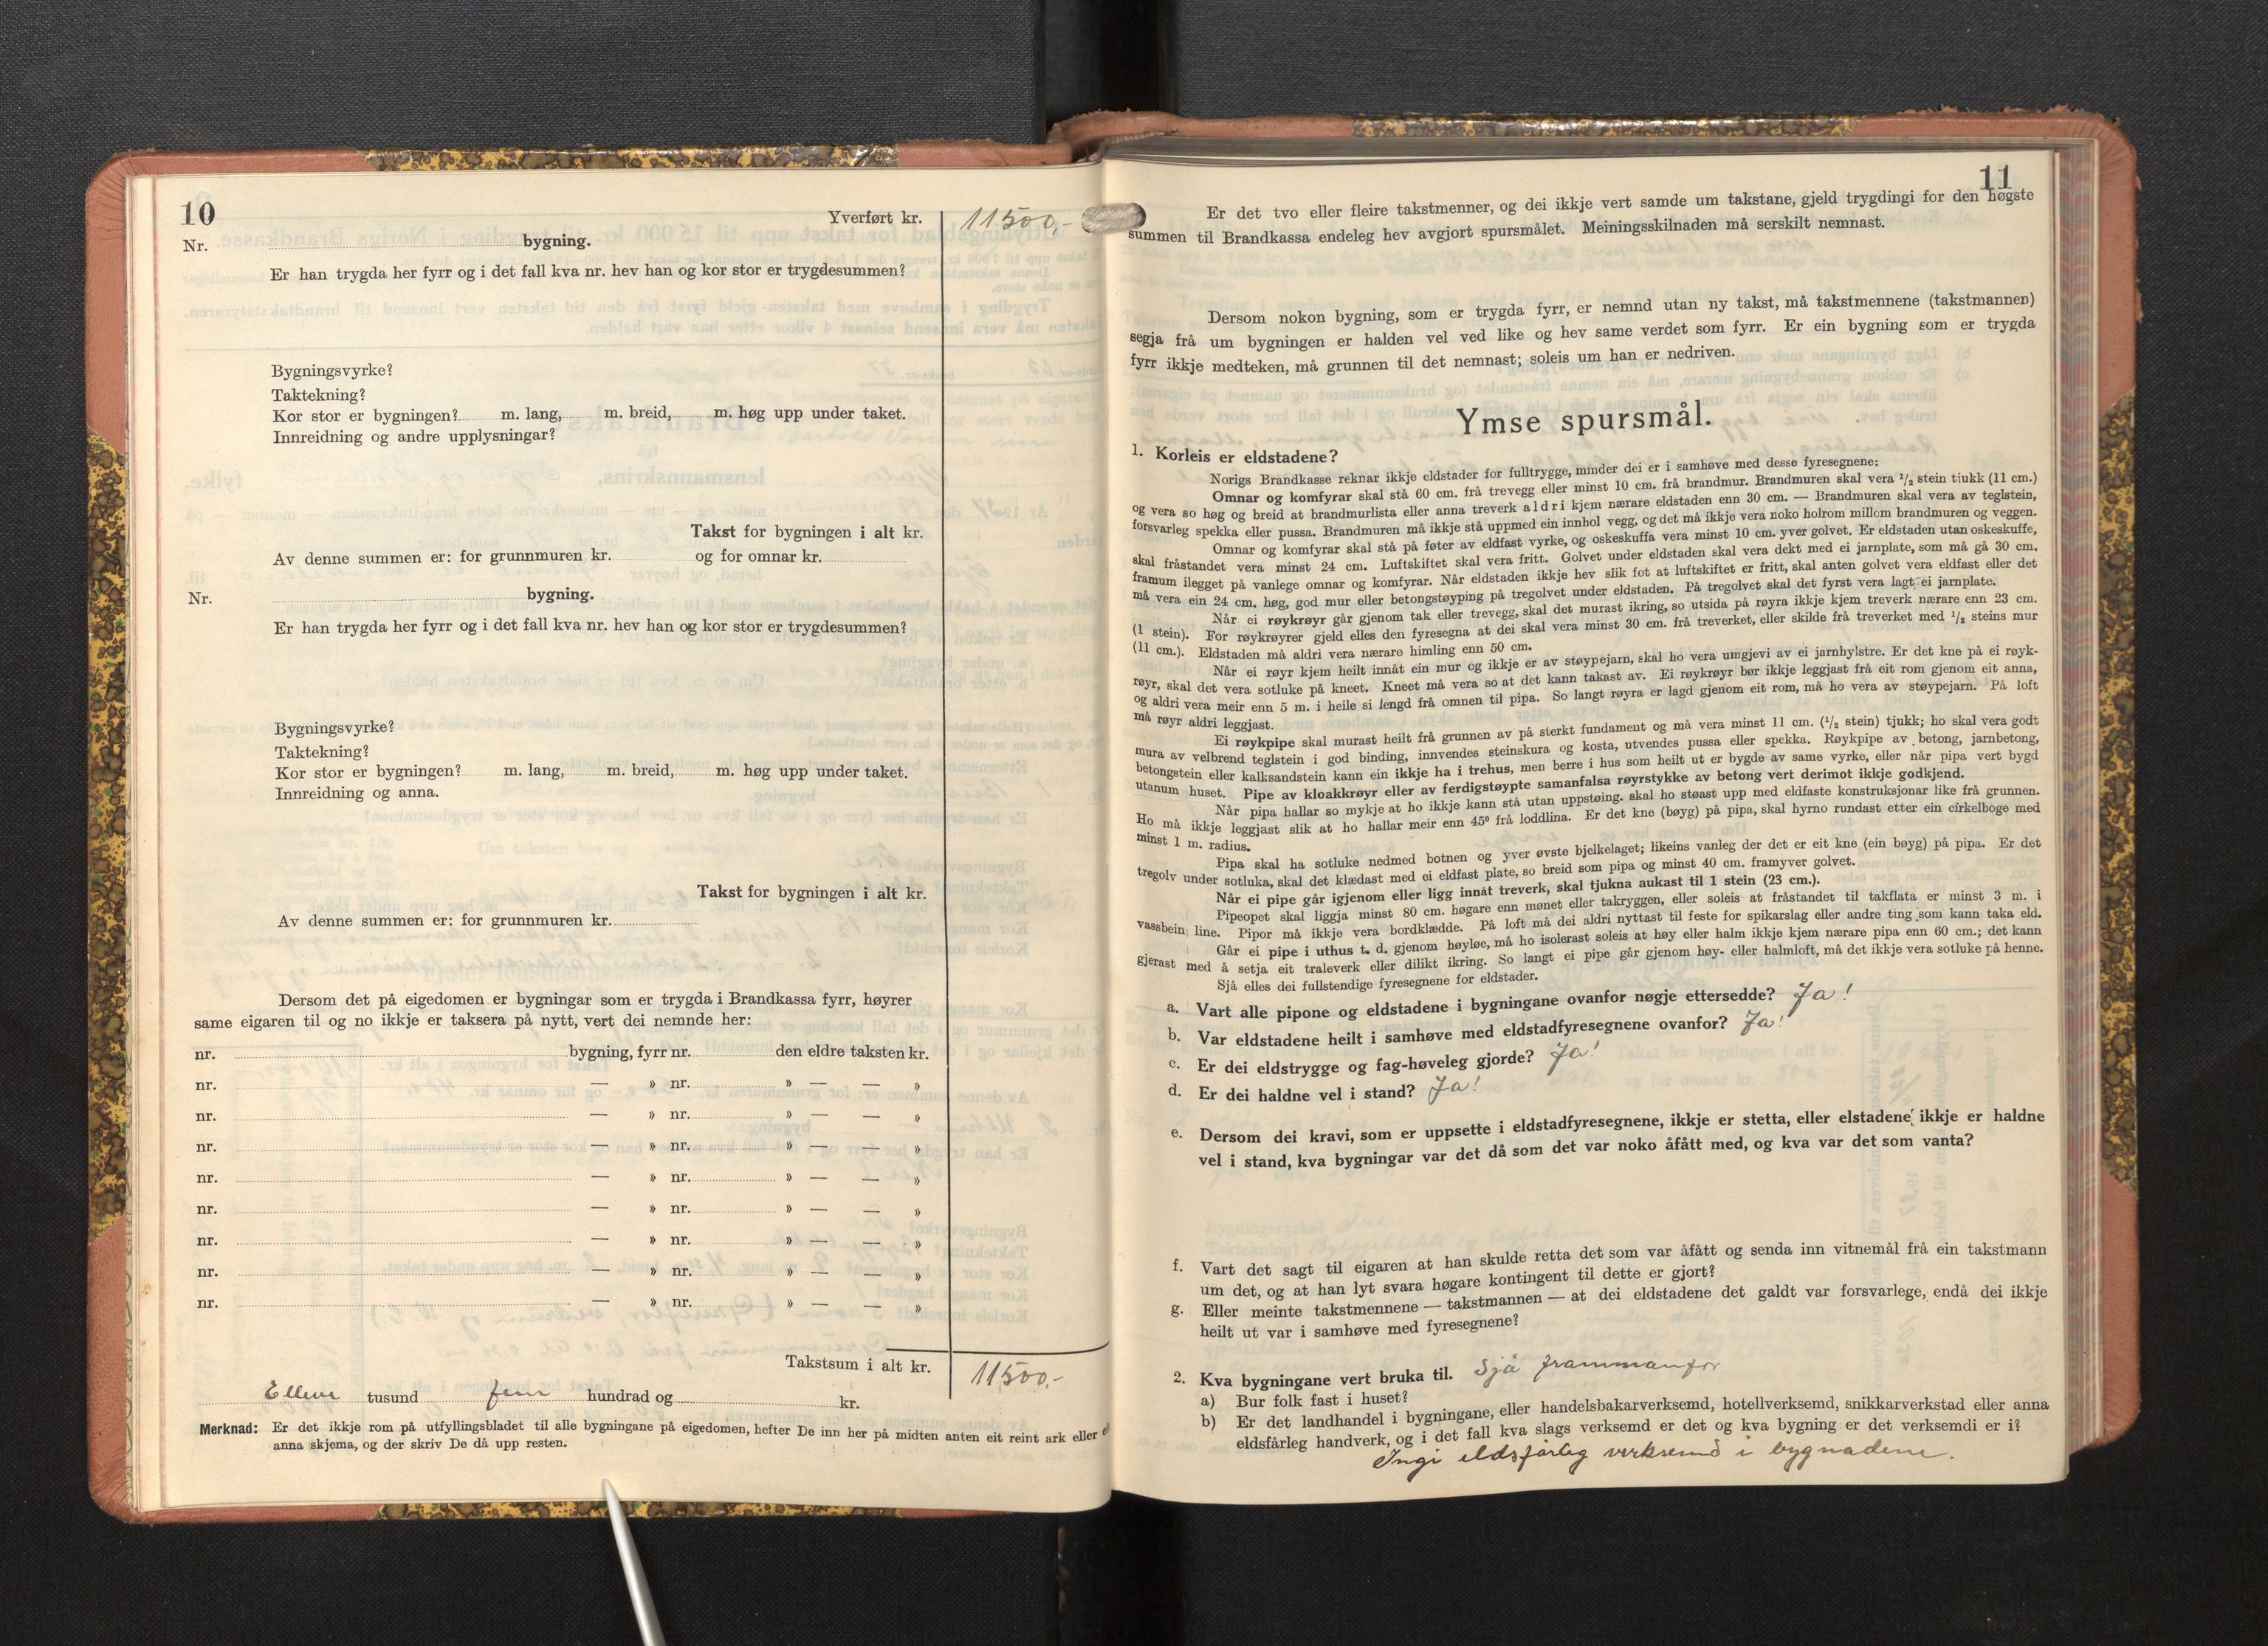 10
Yverført kr. 11500,-
Nr. bygning.
Er han trygda her fyrr og i det fall kva nr. hev han og kor stor er trygdesummen?
Bygningsvyrke?
Taktekning?
Kor stor er bygningen? m. lang, m. breid, m. høg upp under taket.
Innreidning og andre upplysningar?
Takst for bygningen i alt kr.
Av denne summen er: for grunnmuren kr. og for omnar kr.
Nr. bygning.
Er han trygda her fyrr og i det fall kva nr. hev han og kor stor er trygdesummen?
Bygningsvyrke?
Taktekning?
Kor stor er bygningen? m. lang, m. breid, m. høg upp under taket.
Innreidning og anna.
Takst for bygningen i alt kr.
Av denne summen er: for grunnmuren kr.
Dersom det på eigedomen er bygningar som er trygda i Brandkassa fyrr, høyrer
same eigaren til og no ikkje er taksera på nytt, vert dei nemnde her:
nr. bygning, fyrr nr. den eldre taksten kr.
nr. — » nr. » — — »
nr. — » nr. » — — »
nr. — » nr. » — — »
nr. — » nr. » — — »
nr. — » nr. » — — »
nr. — » nr. » — — »
nr. — » nr. » — — »
nr. — » nr. » — — »
Takstsum i alt kr. 11500,-
Elleve tusund fem hundrad og kr.
Merknad: Er det ikkje rom på utfyllingsbladet til alle bygningane på eigedomen, hefter De inn her på midten anten eit reint ark eller
anna skjema, og der skriv De då upp resten.
11
Er det tvo eller fleire takstmenner, og dei ikkje vert samde um takstane, gjeld trygdingi for den høgste
summen til Brandkassa endeleg hev avgjort spursmålet. Meiningsskilnaden må serskilt nemnast.
Dersom nokon bygning, som er trygda fyrr, er nemnd utan ny takst, må takstmennene (takstmannen)
segja frå um bygningen er halden vel ved like og hev same verdet som fyrr. Er ein bygning som er trygda
fyrr ikkje medteken, må grunnen til det nemnast; soleis um han er nedriven.
Ymse spursmål.
1. Korleis er eldstadene?
Norigs Brandkasse reknar ikkje eldstader for fulltrygge, minder dei er i samhøve med desse fyresegnene:
Omnar og komfyrar skal stå 60 cm. frå trevegg eller minst 10 cm. frå brandmur. Brandmuren skal vera 1/2 stein tjukk (11 cm.)
og vera so høg og breid at brandmurlista eller anna treverk aldri kjem nærare eldstaden enn 30 cm. — Brandmuren skal vera av teglstein,
forsvarleg spekka eller pussa. Brandmuren må ikkje stå uppmed ein innhol vegg, og det må ikkje vera noko holrom millom brandmuren og veggen.
Omnar og komfyrar skal stå på føter av eldfast vyrke, og oskeskuffa vera minst 10 cm. yver golvet. Er eldstaden utan oskeskuffe,
skal fråstandet vera minst 24 cm. Luftskiftet skal vera fritt. Golvet under eldstaden skal vera dekt med ei jarnplate, som må gå 30 cm.
framum ilegget på vanlege omnar og komfyrar. Når eldstaden ikkje hev slik fot at luftskiftet er fritt, skal anten golvet vera eldfast eller det
må vera ein 24 cm. høg, god mur eller betongstøyping på tregolvet under eldstaden. På tregolvet skal det fyrst vera lagt ei jarnplate.
Når ei røykrøyr går gjenom tak eller trevegg, skal det murast ikring, so utsida på røyra ikkje kjem treverk nærare enn 23 cm.
(1 stein). For røykrøyrer gjeld elles den fyresegna at dei skal vera minst 30 cm. frå treverket, eller skilde frå treverket med 1/2 steins mur
(11 cm.). Eldstaden må aldri vera nærare himling enn 50 cm.
Når ei røyr kjem heilt innåt ein mur og ikkje er av støypejarn, skal ho vera umgjevi av ei jarnhylstre. Er det kne på ei røyk-
røyr, skal det vera sotluke på kneet. Kneet må vera so at det kann takast av. Ei røykrøyr bør ikkje leggjast frå eit rom gjenom eit anna,
og aldri vera meir enn 5 m. i heile si lengd frå omnen til pipa. So langt røyra er lagd gjenom eit rom, må ho vera av støypejarn. På loft
må røyr aldri leggjast.
Ei røykpipe skal murast heilt frå grunnen av på sterkt fundament og må vera minst 11 cm. (1/2 stein) tjukk; ho skal vera godt
mura av velbrend teglstein i god binding, innvendes steinskura og kosta, utvendes pussa eller spekka. Røykpipe av betong, jarnbetong,
betongstein eller kalksandstein kann ein ikkje ha i trehus, men berre i hus som heilt ut er bygde av same vyrke, eller når pipa vert bygd
utanum huset. Pipe av kloakkrøyr eller av ferdigstøypte samanfalsa røyrstykke av betong vert derimot ikkje godkjend.
Når pipa hallar so mykje at ho ikkje kann stå utan uppstøing, skal ho støast upp med eldfaste konstruksjonar like frå grunnen.
Ho må ikkje leggjast slik at ho hallar meir enn 45° frå loddlina. Er det kne (bøyg) på pipa, skal hyrno rundast etter ein cirkelboge med
minst 1 m. radius.
Pipa skal ha sotluke nedmed botnen og yver øvste bjelkelaget; likeins vanleg der det er eit kne (ein bøyg) på pipa. Er det
tregolv under sotluka, skal det klædast med ei eldfast plate, so breid som pipa og minst 40 cm. framyver golvet.
Når ei pipe går igjenom eller ligg innåt treverk, skal tjukna aukast til 1 stein (23 cm.).
Pipeopet skal liggja minst 80 cm. høgare enn mønet eller takryggen, eller soleis at fråstandet til takflata er minst 3 m. i
vassbein line. Pipor må ikkje vera bordklædde. På loft må dei aldri nyttast til feste for spikarslag eller andre ting som kann taka eld.
Går ei pipe i uthus t. d. gjenom høyløe, må ho isolerast soleis at høy eller halm ikkje kjem nærare pipa enn 60 cm.; det kann
gjerast med å setja eit traleverk eller dilikt ikring. So langt ei pipe går gjenom høy- eller halmloft, må det ikkje vera sotluke på henne.
Sjå elles dei fullstendige fyresegnene for eldstader.
a. Vart alle pipone og eldstadene i bygningane ovanfor nøgje ettersedde? Ja!
b. Var eldstadene heilt i samhøve med eldstadfyresegnene ovanfor? Ja!
c. Er dei eldstrygge og fag-høveleg gjorde? Ja!
d. Er dei haldne vel i stand? Ja!
e. Dersom dei kravi, som er uppsette i eldstadfyresegnene, ikkje er stetta, eller elstadene ikkje er haldne
vel i stand, kva bygningar var det då som det var noko åfått med, og kva var det som vanta?
f. Vart det sagt til eigaren at han skulde retta det som var åfått og senda inn vitnemål frå ein takstmann
um det, og at han lyt svara høgare kontingent til dette er gjort?
g. Eller meinte takstmennene — takstmannen — at dei eldstadene det galdt var forsvarlege, endå dei ikkje
heilt ut var i samhøve med fyresegnene?
2. Kva bygningane vert bruka til. Sjå frammanfor
a) Bur folk fast i huset?
b) Er det landhandel i bygningane, eller handelsbakarverksemd, hotellverksemd, snikkarverkstad eller anna
eldsfårleg handverk, og i det fall kva slags verksemd er det og kva bygning er det verksemdi er i?
Ingi eldsfårleg verksemd i bygnadene.